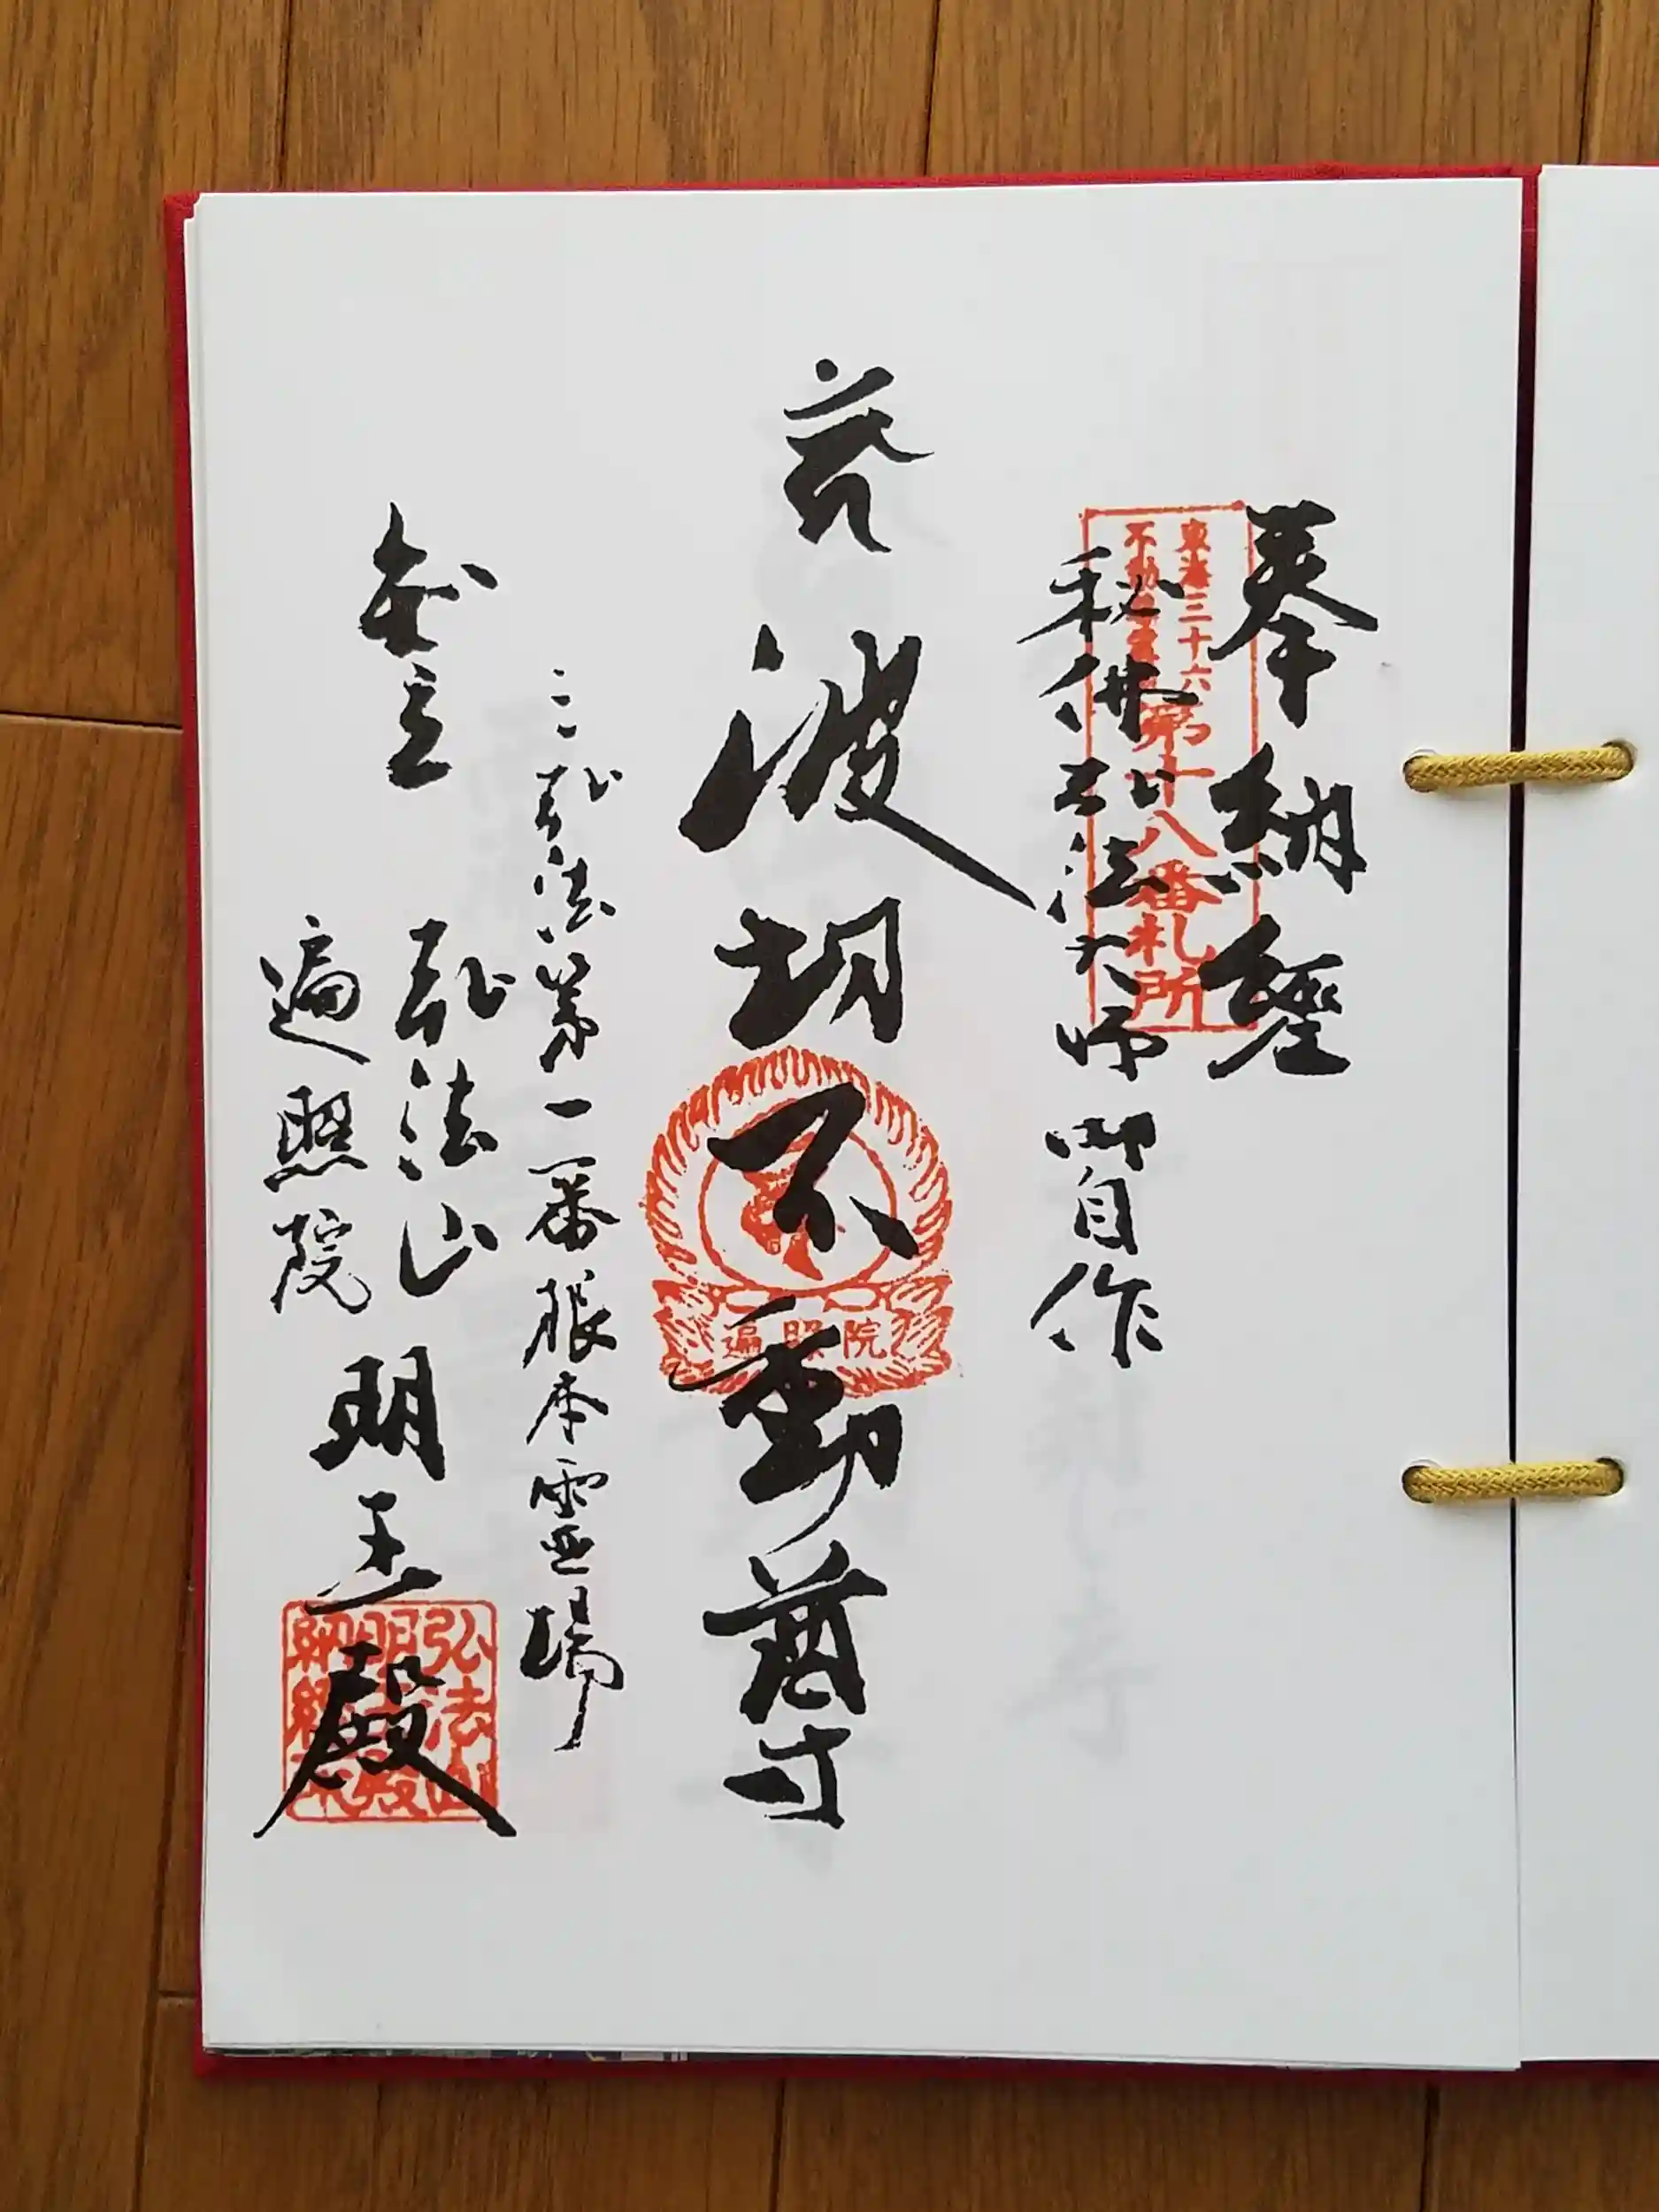 奉納經
東海三十六
不動尊霊場
第十八番札所
秘佛弘法大師御自作
荒波切不動尊
遍照院
三弘法第一番根本霊場
知立
弘法山
遍照院
明王殿
弘法山
明王殿
納經